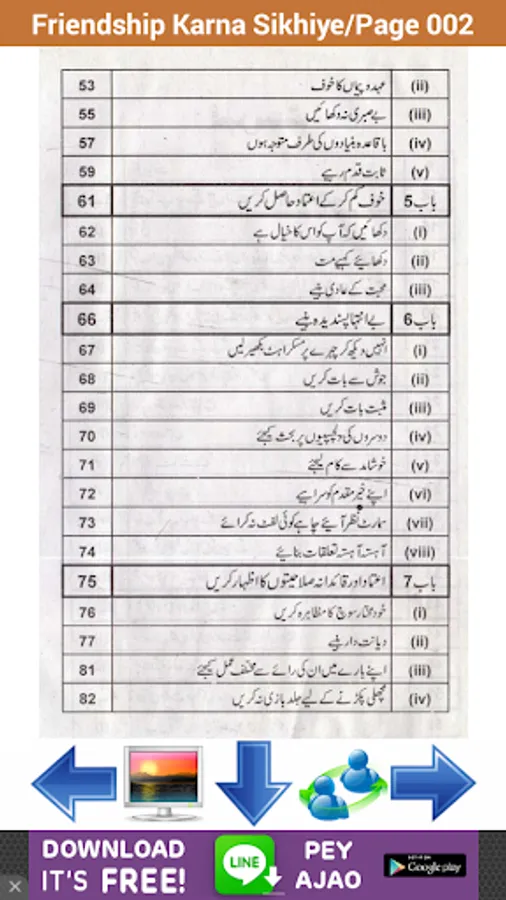 Friendship Karna Sikhiye/Page 002
(ii) عہد و پیماں کا خوف 53
(iii) بے صبری نہ دکھائیں 55
(iv) باقاعدہ بنیادوں کی طرف متوجہ ہوں 57
(v) ثابت قدم رہیے 59
باب 5 خوف کم کر کے اعتماد حاصل کریں 61
(i) دکھائیں کہ آپ کو اس کا خیال ہے 62
(ii) دکھایئے کہیے مت 63
(iii) محبت کے عادی بنیے 64
باب 6 بے انتہا پسندیدہ بنیے 66
(i) انہیں دیکھ کر چہرے پر مسکراہٹ بکھیر لیں 67
(ii) جوش سے بات کریں 68
(iii) مثبت بات کریں 69
(iv) دوسروں کی دلچسپیوں پر بحث کیجئے 70
(v) خوشامد سے کام لیجئے 71
(vi) اپنے خیر مقدم کو سراہیے 72
(vii) سمارٹ نظر آیئے چاہے کوئی لفٹ نہ کرائے 73
(viii) آہستہ آہستہ تعلقات بنایئے 74
باب 7 اعتماد اور قائدانہ صلاحیتوں کا اظہار کریں 75
(i) خود مختار سوچ کا مظاہرہ کریں 76
(ii) دیانت دار بنیے 77
(iii) اپنے بارے میں ان کی رائے سے مختلف عمل کیجئے 81
(iv) مچھلی پکڑنے کے لیے جلد بازی نہ کریں 82
DOWNLOAD
IT'S FREE!
LINE
PEY
AJAO
Google play